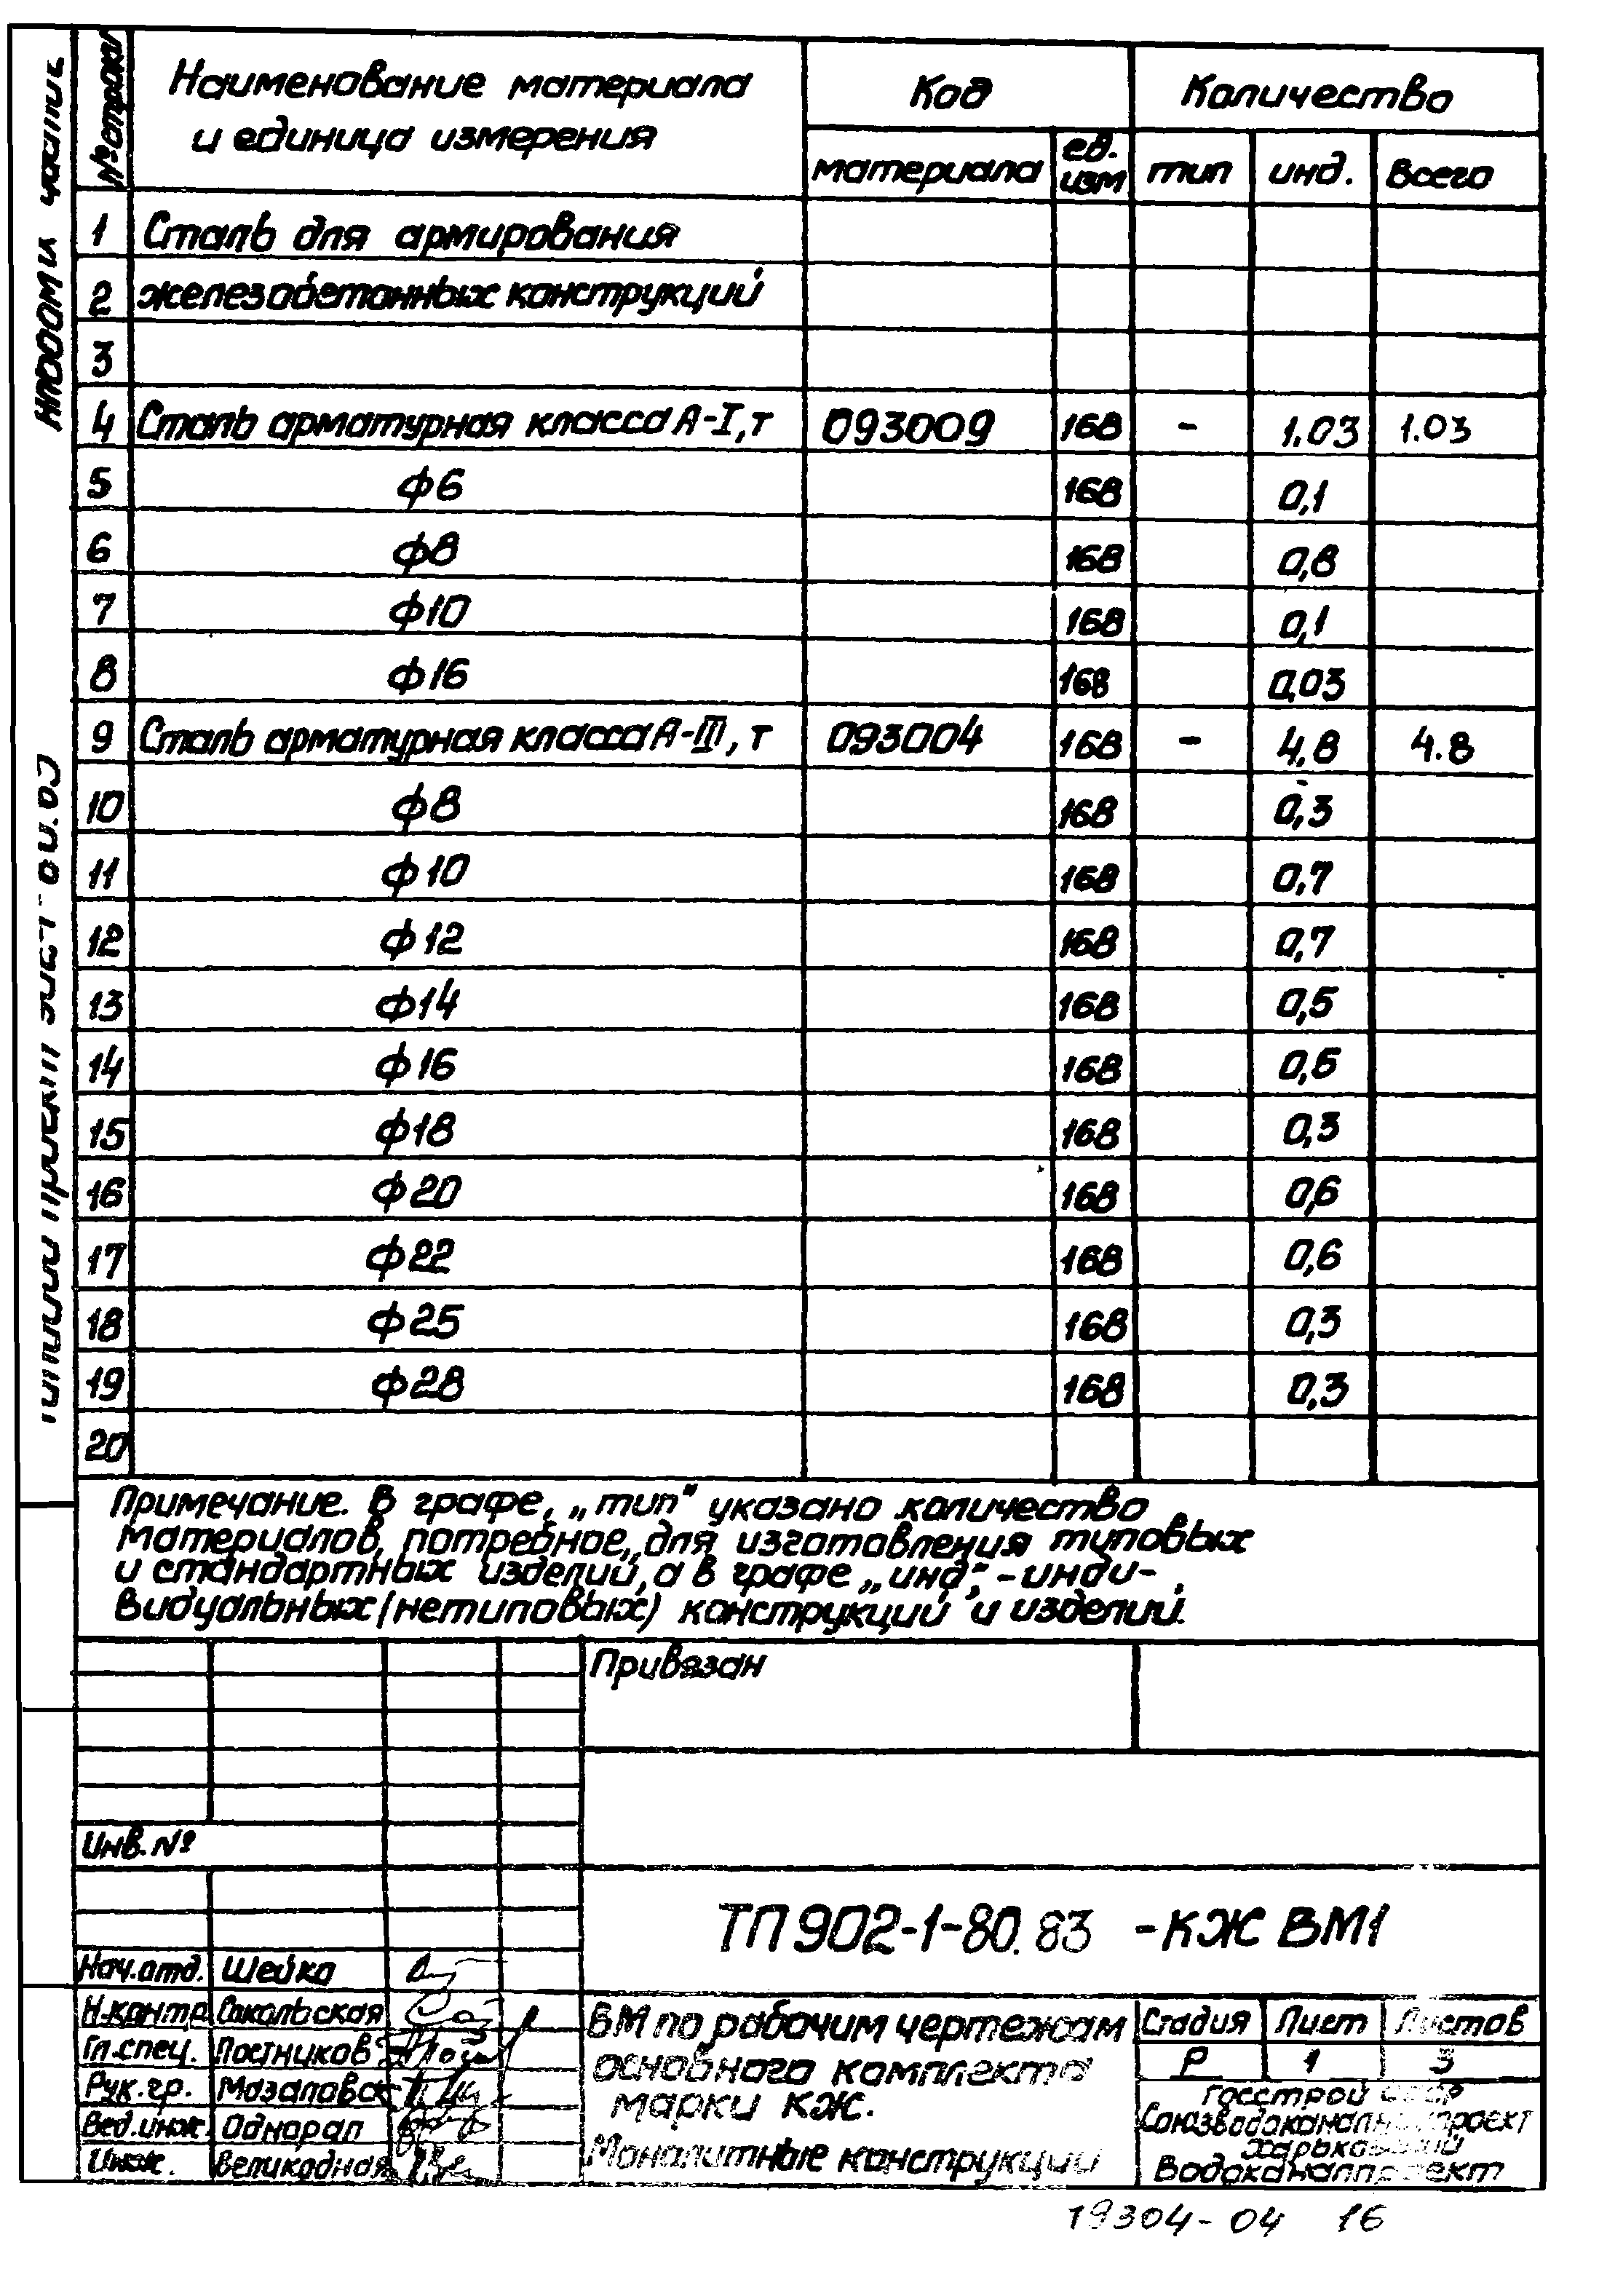 № строки Наименование материала и единица измерения Код Количество
материала ед. изм тип инд. всего
1 Сталь для армирования
2 железобетонных конструкций
3
4 Сталь арматурная класса А-I, т 093009 168 - 1.03 1.03
5 ф6 168 0,1
6 ф8 168 0,8
7 ф10 168 0,1
8 ф16 168 0,03
9 Сталь арматурная класса А-III, т 093004 168 - 4,8 4.8
10 ф8 168 0,3
11 ф10 168 0,7
12 ф12 168 0,7
13 ф14 168 0,5
14 ф16 168 0,5
15 ф18 168 0,3
16 ф20 168 0,6
17 ф22 168 0,6
18 ф25 168 0,3
19 ф28 168 0,3
20
Примечание. В графе, „тип" указано количество
материалов, потребное, для изготовления типовых
и стандартных изделий, а в графе „инд", - инди-
видуальных (нетиповых) конструкций и изделий.
Привязан
Инв. №
ТП 902-1-80.83 - КЖ ВМ1
Нач. отд. Шейко
Н.контр. Сокольская
Гл. спец. Постников
Рук. гр.
Вед. инж. Однорал
Инж. Великодная
ВМ по рабочим чертежам
основного комплекта
марки КЖ.
Монолитные конструкции
Стадия Лист Листов
Р 1 3
Госстрой СССР
Союзводоканалниипроект
Харьковский
Водоканалпроект
19304-04 16